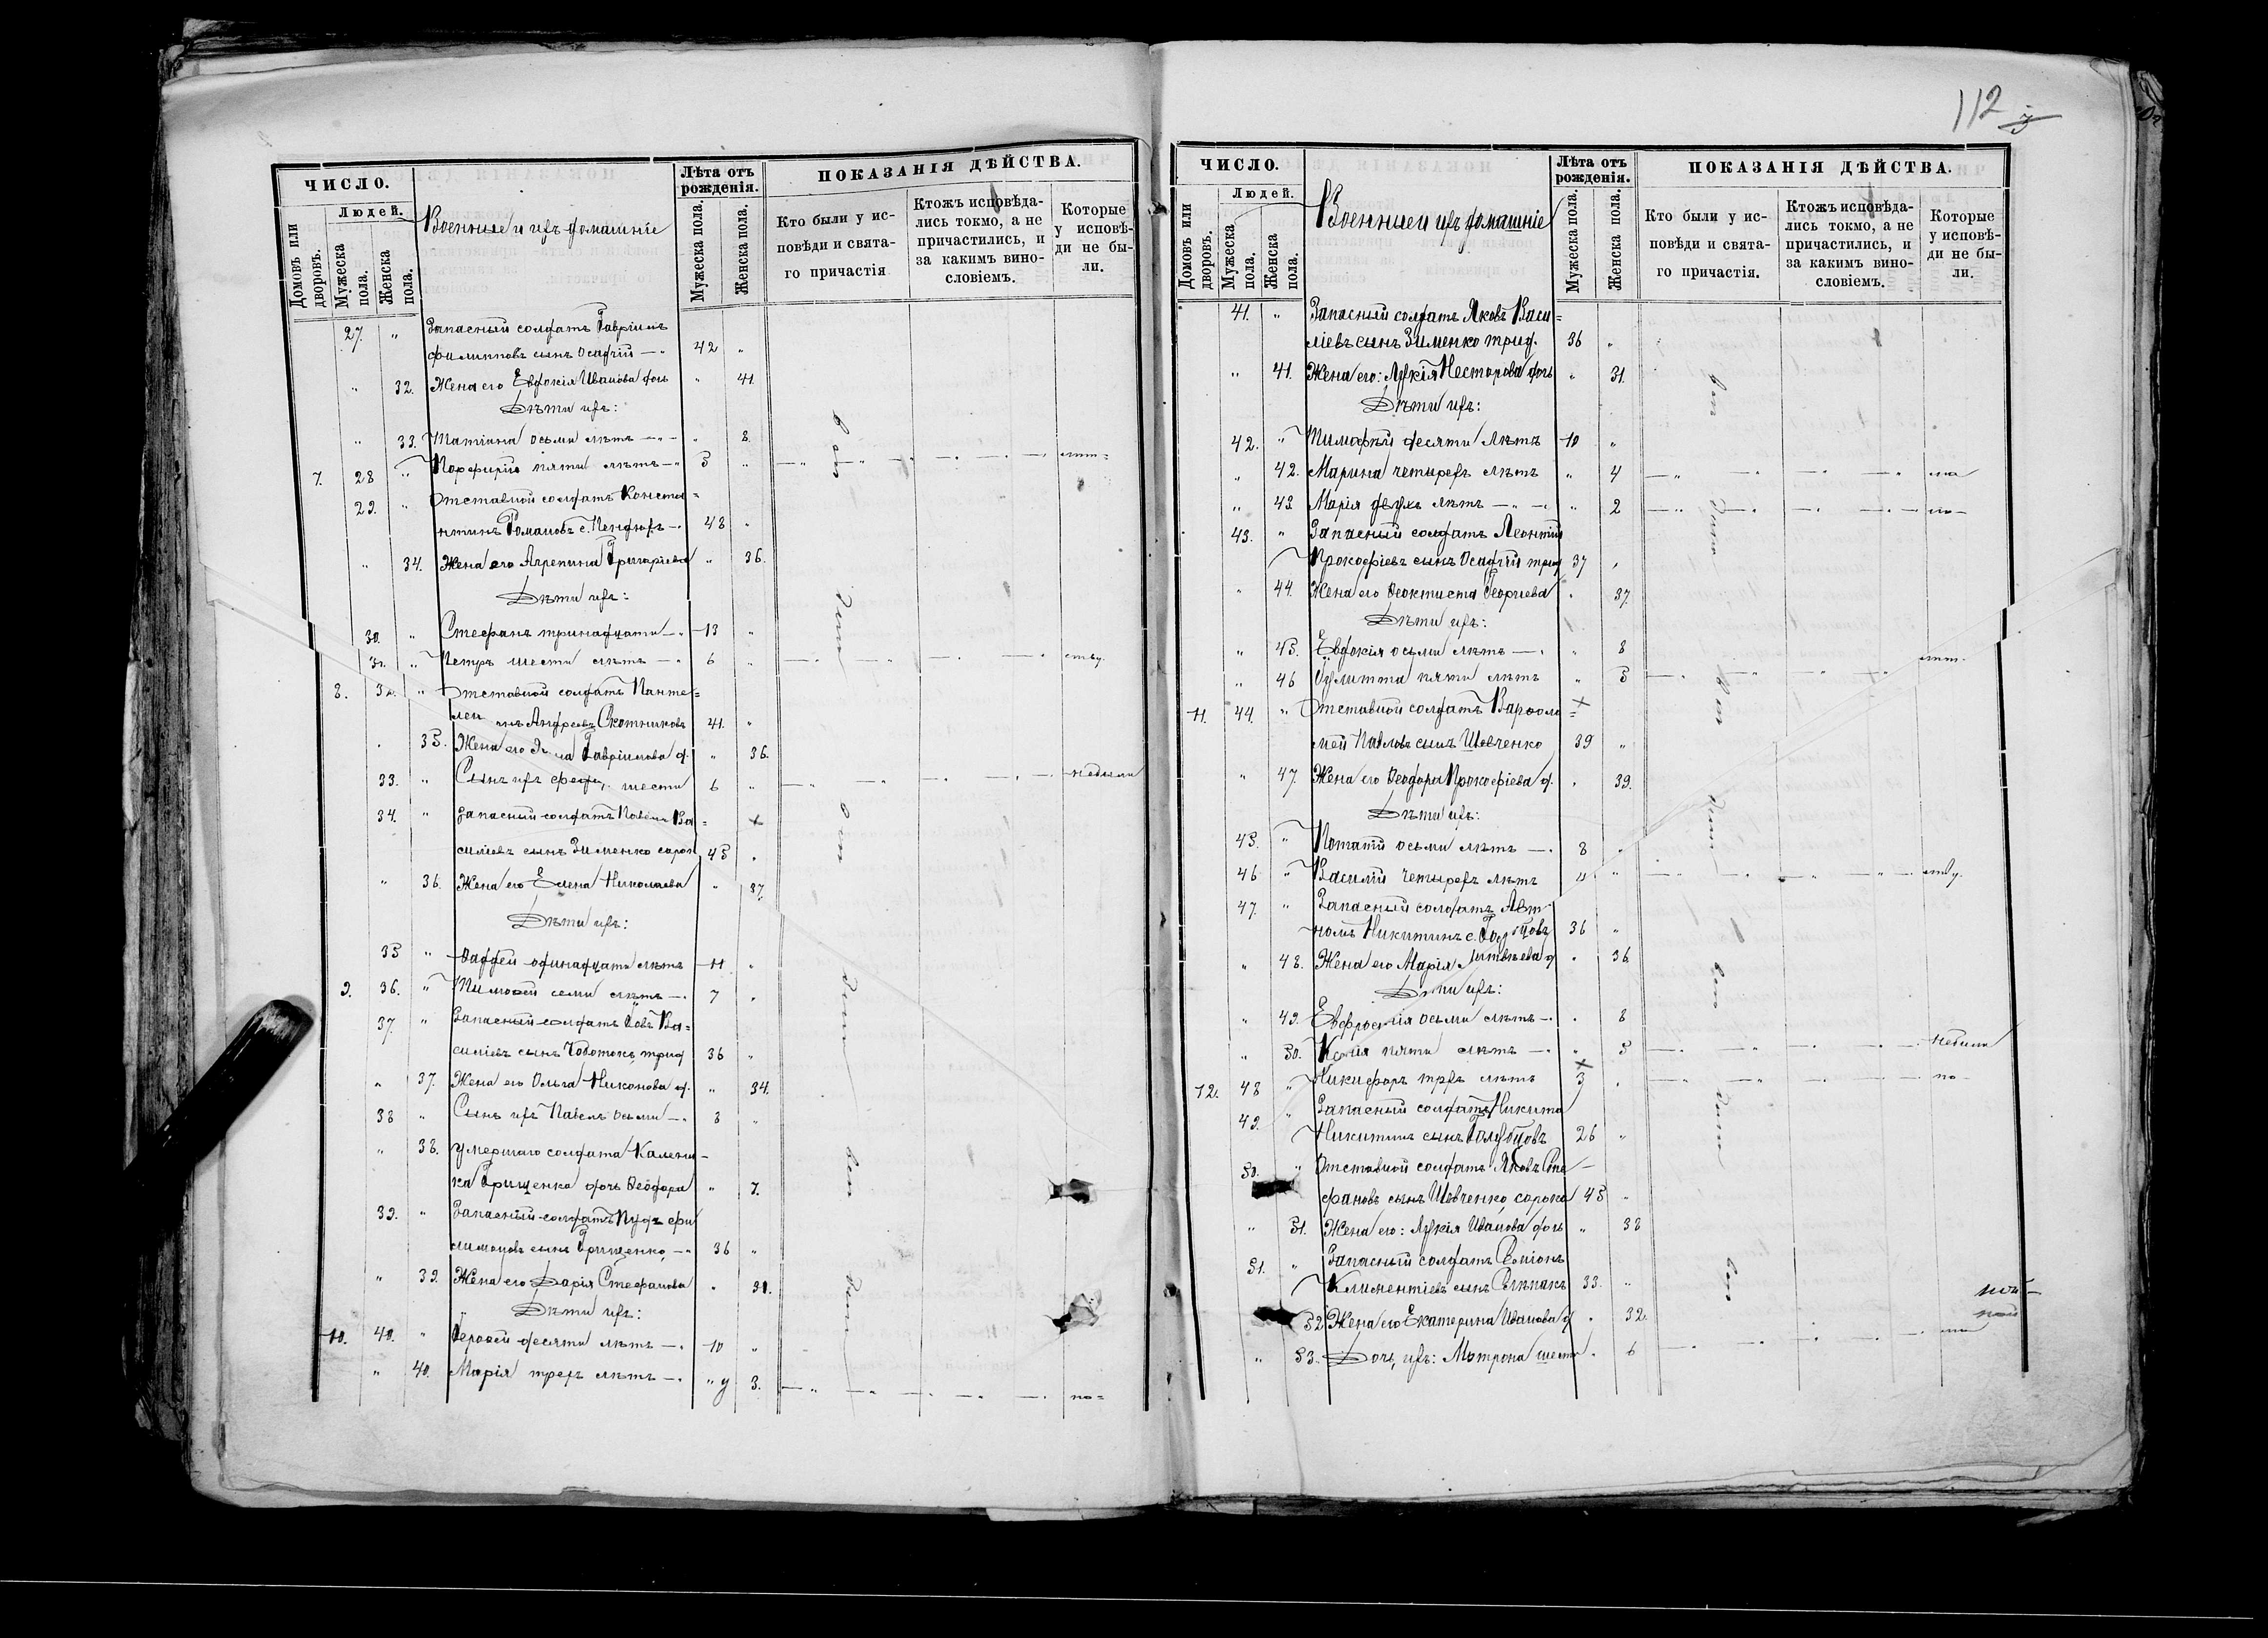 112
ЧИСЛО.
Людей.
Домовъ или дворовъ.
Мужеска пола.
Женска пола.
Военные и ихъ домашніе
Лѣта отъ рожденія.
Мужеска пола.
Женска пола.
ПОКАЗАНІЯ ДѢЙСТВА.
Кто были у исповѣди и святаго причастія
Ктожъ исповѣдались токмо, а не причастились, и за какимъ винословіемъ.
Которые у исповѣди не были.
27. " Запасный солдатъ Гавріилъ
Филипповъ сынъ Осадчій — " 42 "
" 32. Жена его Евдокія Иванова дочь " 41.
Дѣти ихъ:
" 33. Татіана осьми лѣтъ — " — " 8.
7. 28 " Порфирій пяти лѣтъ — " 5 "
29. " Отставной солдатъ Конста=
нтинъ Романовъ с. 48 "
" 34. Жена его Агрепина Григоріева " 36.
Дѣти ихъ:
30. " Стефанъ тринадцати — " 13 "
31. " Петръ шести лѣтъ — " 6 "
8. 32. " Отставной солдатъ Панте=
леи нъ Андреевъ Скотниковъ 41. "
" 35. Жена его Гавріилова д. " 36.
33. " Сынъ ихъ шести 6 " не были
34. " Запасный солдатъ Павелъ Ва=
силіевъ сынъ Зименко сорок 45 "
" 36. Жена его Елена Николаева " 37.
Дѣти ихъ:
35 " Фаддей одинадцати лѣтъ 11 "
9. 36. " Тимоѳей семи лѣтъ — " 7 "
37. " Запасный солдатъ Іовъ Ва=
силіевъ сынъ Чоботокъ, трид 36 "
" 37. Жена его Ольга Никонова д. " 34.
38 " Сынъ ихъ Павелъ осьми — " 8 "
" 38. Умершаго солдата Калени-
ка Грищенка дочь Ѳеодора " 7.
39. " Запасный солдатъ Пудъ Фи
лимоновъ сынъ Грищенко, — " 36 "
" 39. Жена его Дарія Стефанова " 31.
Дѣти ихъ:
10. 40. " Сергѣй десяти лѣтъ — " 10 "
" 40. Марія трехъ лѣтъ — " " 3.
ЧИСЛО.
Людей.
Домовъ или дворовъ.
Мужеска пола.
Женска пола.
Военные и ихъ домашніе
Лѣта отъ рожденія.
Мужеска пола.
Женска пола.
ПОКАЗАНІЯ ДѢЙСТВА.
Кто были у исповѣди и святаго причастія.
Ктожъ исповѣдались токмо, а не причастились, и за какимъ винословіемъ.
Которые у исповѣди не были.
41. " Запасный солдатъ Яковъ Васи=
ліевъ сынъ Зименко трид. 36 "
" 41. Жена его: Лукія Несторова дочь " 31.
Дѣти ихъ:
42. " Тимофѣй десяти лѣтъ 10 "
" 42. Марина четырехъ лѣтъ " 4
" 43. Марія двухъ лѣтъ — " — " 2
43. " Запасный солдатъ Леонтій
Прокофіевъ сынъ Осадчій трид 37 "
" 44. Жена его Ѳеоктиста Георгіева " 37.
Дѣти ихъ:
" 45. Евдокія осьми лѣтъ — " " 8
" 46 Іулитта пяти лѣтъ " 5
11. 44. " Отставной солдатъ Варѳоло=
мей Павловъ сынъ Шевченко 39 "
" 47. Жена его Ѳеодора Прокофіева д. " 39.
Дѣти ихъ:
45. " Потапій осьми лѣтъ — " 8 "
46 " Василій четырехъ лѣтъ 4 "
47. " Запасный солдатъ Авт-
номъ Никитинъ с. 36 "
" 48. Жена его Марія Матвѣева д " 36.
Дѣти ихъ:
" 49. Евфросинія осьми лѣтъ — " " 8
" 50. Ксенія пяти лѣтъ — " " 5 не были
12. 48 " Никифоръ трехъ лѣтъ 3 "
49. " Запасный солдатъ Никита
Никитинъ сынъ Голубцовъ 26 "
50. " Отставной солдатъ Яковъ Сте-
фановъ сынъ Шевченко, сорока 45 "
" 51. Жена его: Лукія Иванова дочь " 38
51. " Запасный солдатъ Семіонъ
Климентіевъ сынъ Слѣпакъ 33. "
52. Жена его Екатерина Иванова д " 32.
" 53. Дочь ихъ: Матрона шести " 6